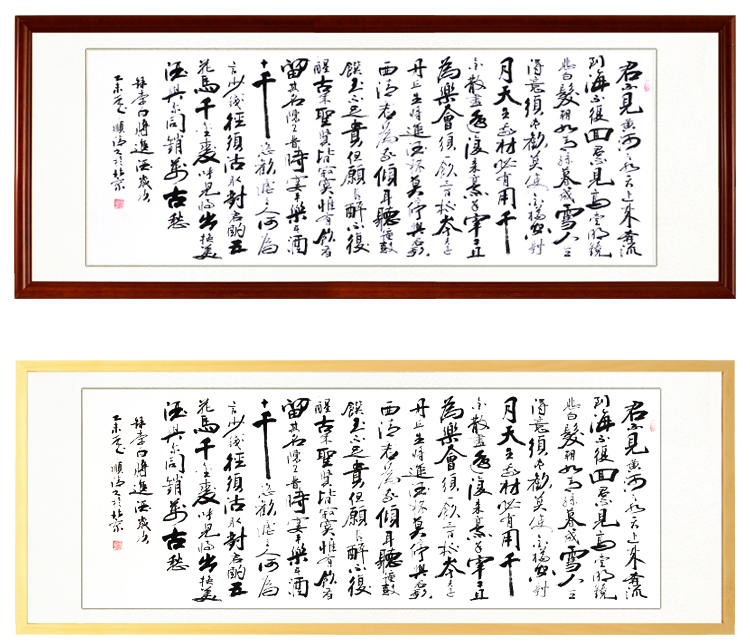 君不見黄河之水天上来奔流
到海不復回君不見高堂明鏡
悲白髮朝如青絲暮成雪人生
得意須尽歡莫使金樽空對
月天生我材必有用千
金散盡還復来烹羊宰牛且
為樂會須一飲三百杯岑夫子
丹丘生將進酒杯莫停與君歌
君為我傾耳聽鐘鼓
饌玉不足貴但願長醉不復
醒古来聖賢皆寂寞惟有飲者
留其名陳王昔時宴平樂斗酒
十千恣歡謔主人何為
言少錢徑須沽取對君酌五
花馬千金裘呼兒將出換美
酒與尔同銷萬古愁
錄李白將進酒歲次
乙未夏順清书於北京
君不見黄河之水天上来奔流
到海不復回君不見高堂明鏡
悲白髮朝如青絲暮成雪人生
得意須尽歡莫使金樽空對
月天生我材必有用千
金散盡還復来烹羊宰牛且
為樂會須一飲三百杯岑夫子
丹丘生將進酒杯莫停與君歌
君為我傾耳聽鐘鼓
饌玉不足貴但願長醉不復
醒古来聖賢皆寂寞惟有飲者
留其名陳王昔時宴平樂斗酒
十千恣歡謔主人何為
言少錢徑須沽取對君酌五
花馬千金裘呼兒將出換美
酒與尔同銷萬古愁
錄李白將進酒歲次
乙未夏順清书於北京